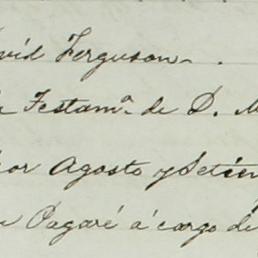 vid Ferguson
Festam.ª de D. M
or Agosto y Setiem
Pagaré á cargo de